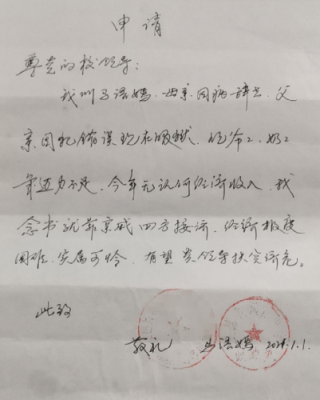 申请
尊贵的校领导:
我叫马语嫣,母亲因病辞世,父
亲因犯错误现在服狱,爷爷、奶奶
年迈力不足,今年无任何经济收入,我
念书就靠亲戚四方接济,经济极度
困难,实属可怜,有望贵领导扶贫济危。
此致
敬礼 马语嫣 2024.1.1.